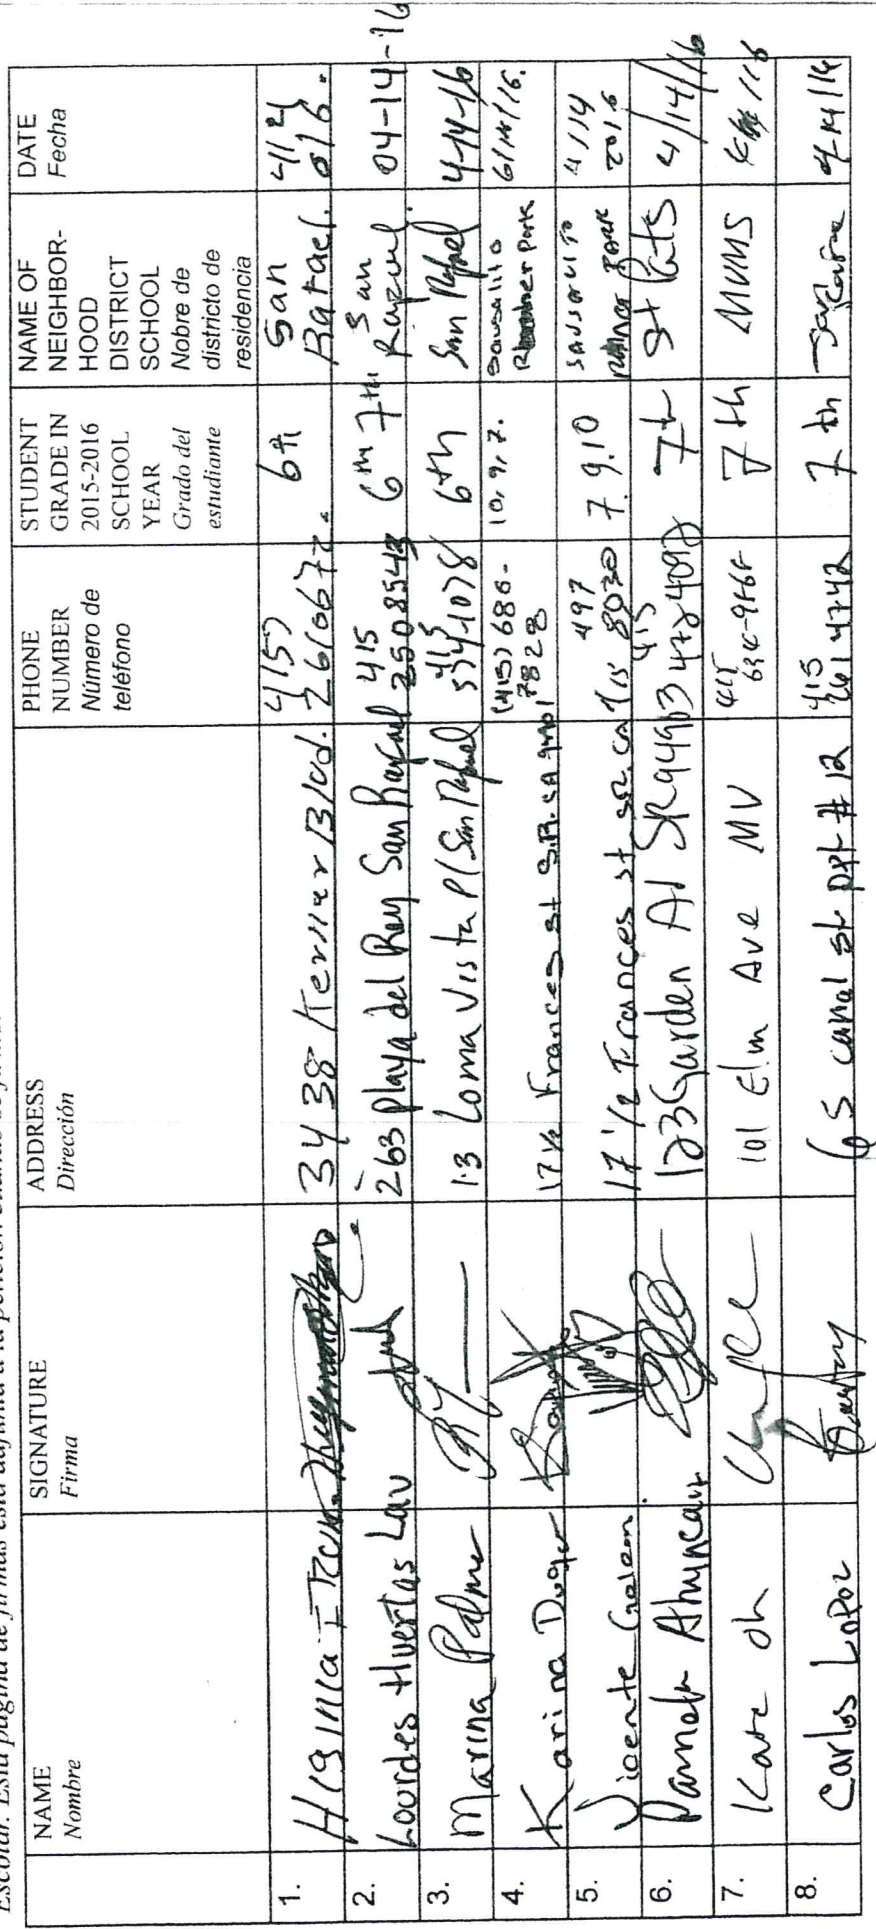 Escolar. Esta página de firmas está adjunta a la petición
NAME
Nombre
SIGNATURE
Firma
ADDRESS
Dirección
PHONE
NUMBER
Número de
teléfono
STUDENT
GRADE IN
2015-2016
SCHOOL
YEAR
Grado del
estudiante
NAME OF
NEIGHBOR-
HOOD
DISTRICT
SCHOOL
Nobre de
districto de
residencia
DATE
Fecha
1.
Higinia
3438 Kerner Blvd.
415)
2610672.
6th
San
Rafael.
2.
Lourdes Huertas Lau
263 playa del Rey San Rafael
415
2508543
6th 7th
San
Rafael.
04-14-16
3.
Marina Palma
13 Loma Vista Pl San Rafael
415
6th
San Rafael
4-14-16
4.
Karina
17 1/2 Frances st S.R. CA
(415) 686-
7828
10, 9, 7.
Sausalito
Park
5.
Vicente
17 1/2 Frances st SR. ca
497
415 8030
7. 9. 10
SAUSALITO
4/14
2016
6.
Pamela
123 Garden Al SR 94903
415
472 4092
7th
St Pats
4/14/16
7.
Kate Oh
101 Elm Ave MV
415
7th
MVMS
8.
Carlos Lopez
65 canal st apt # 12
415
261 4742
7 th
San Rafael
4/14/16